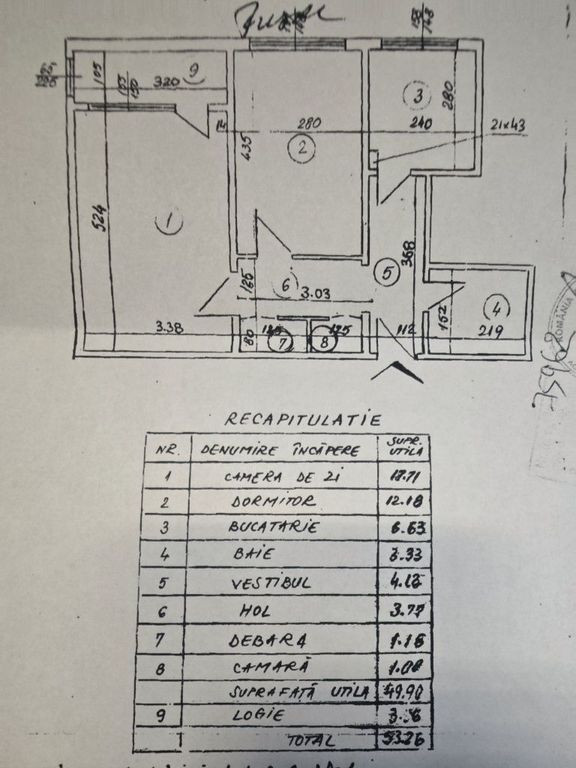 9
105
320
3
280
14
280
240
21x43
2
435
524
1
368
5
6
3.03
4
3.38
80
7
8
112
219
ROMÂNIA
RECAPITULATIE
NR. DENUMIRE ÎNCĂPERE SUPR. UTILĂ
1 CAMERA DE ZI 17.71
2 DORMITOR 12.18
3 BUCATARIE 6.63
4 BAIE 3.33
5 VESTIBUL
6 HOL 3.77
7 DEBARA
8 CAMARĂ
SUPRAFAȚĂ UTILĂ 49.90
9 LOGIE
TOTAL 53.26